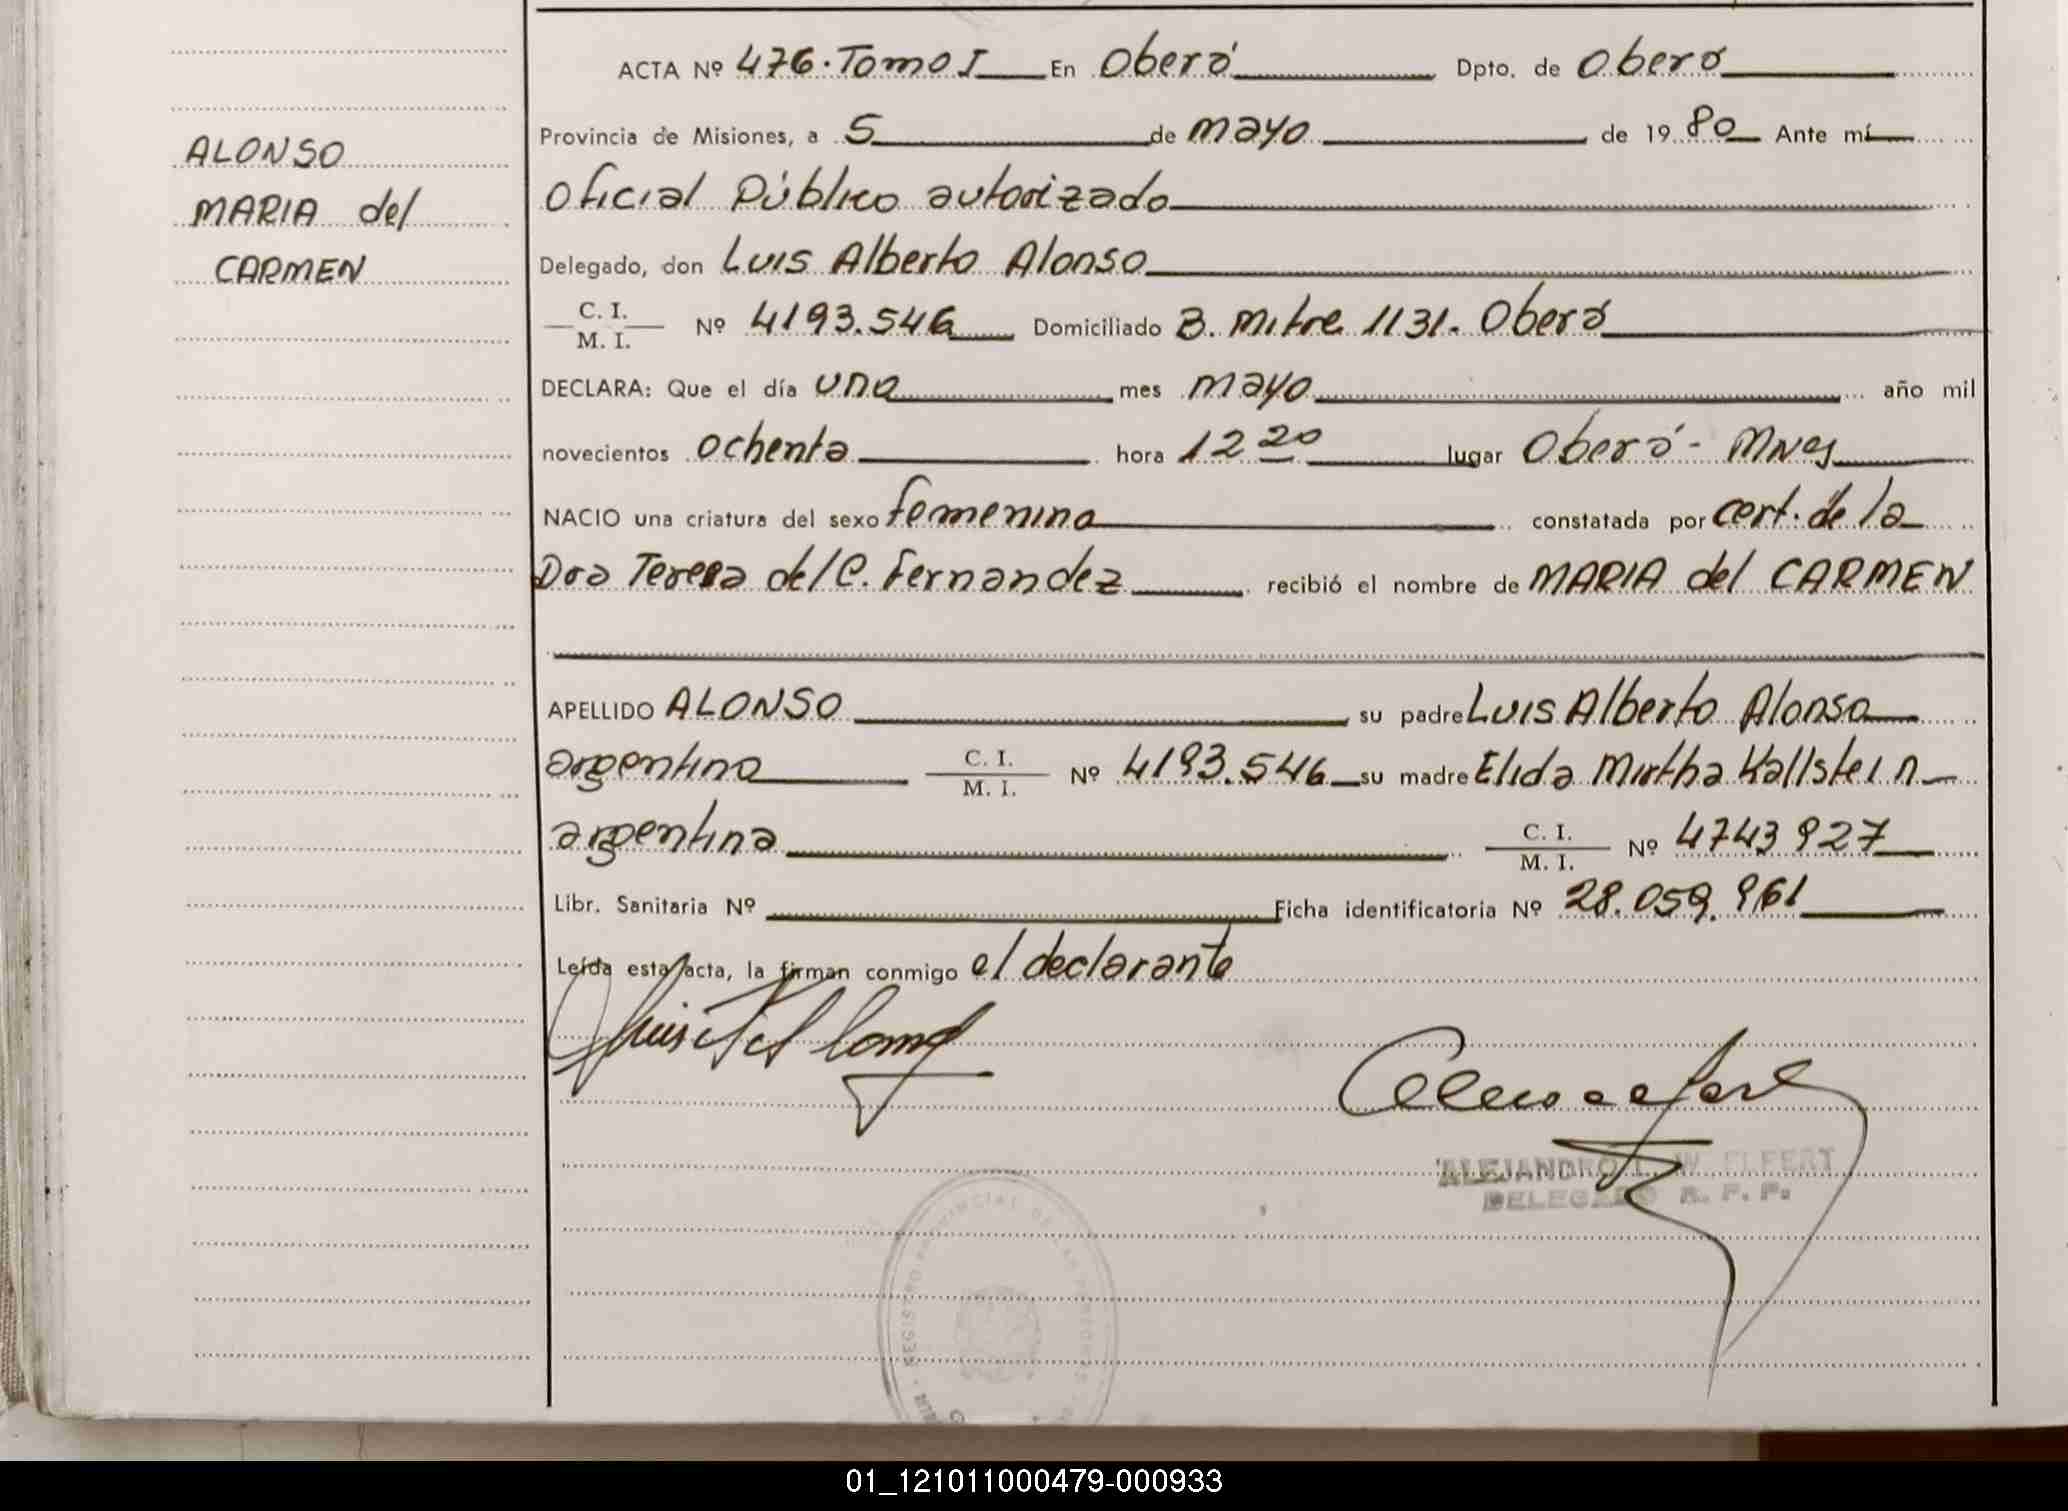 ALONSO
MARIA del
CARMEN
ACTA Nº 476. Tomo I En Oberá Dpto. de Oberá
Provincia de Misiones, a 5 de mayo de 1980 Ante mí
Oficial Público autorizado
Delegado, don Luis Alberto Alonso
C. I.
M. I. Nº 4193.546 Domiciliado B. Mitre 1131. Oberá
DECLARA: Que el día uno mes mayo año mil
novecientos ochenta hora 12 20 lugar Oberá - Mnes
NACIO una criatura del sexo femenino constatada por cert. de la
Dra Teresa del C. Fernandez recibió el nombre de MARIA del CARMEN
APELLIDO ALONSO su padre Luis Alberto Alonso
argentino C. I.
M. I. Nº 4193.546 su madre Elida Mirtha Kallstein
argentina C. I.
M. I. Nº 4743927
Libr. Sanitaria Nº Ficha identificatoria Nº 28.059.961
Leída esta acta, la firman conmigo el declarante
ALEJANDRO L. W ELFERT
DELEGADO R. P. P.
REGISTRO PROVINCIAL DE LAS PERSONAS
01_121011000479-000933